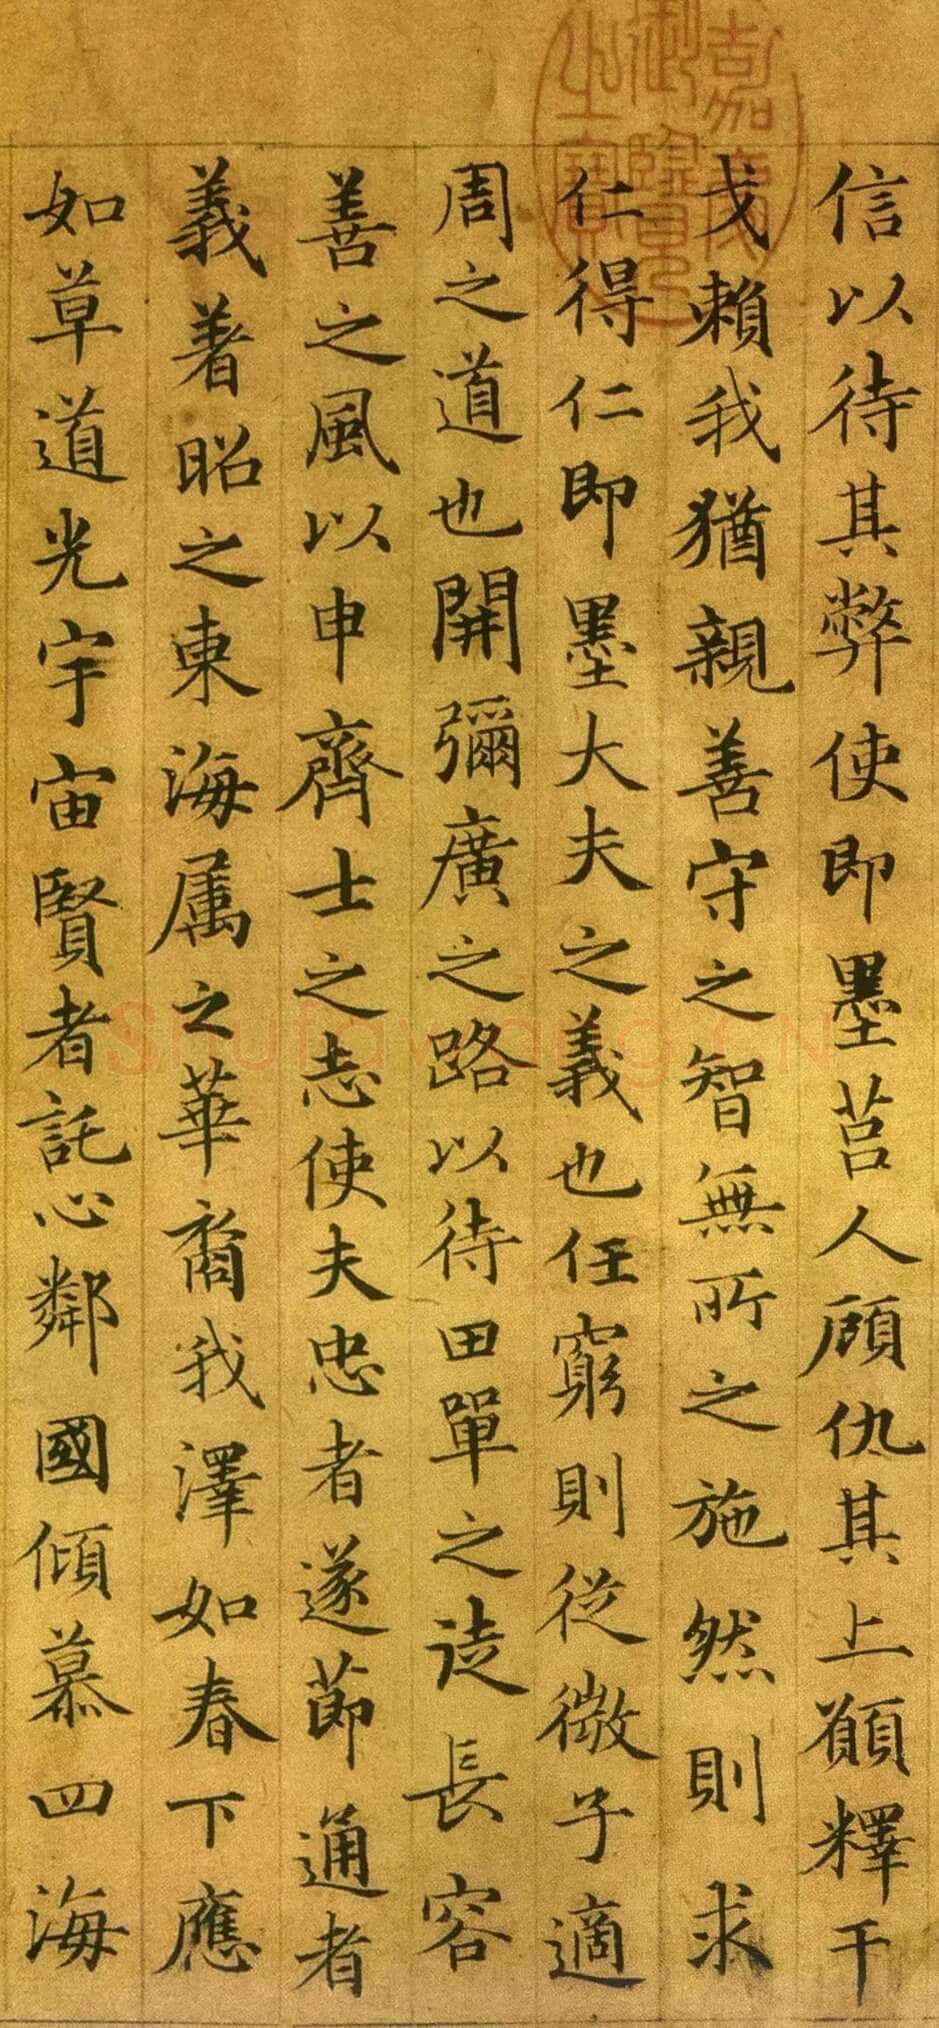 信以待其弊使即墨莒人顧仇其上願釋干
戈賴我猶親善守之智無所之施然則求
仁得仁即墨大夫之義也任窮則從微子適
周之道也開彌廣之路以待田單之徒長容
善之風以申齊士之志使夫忠者遂節通者
義著昭之東海属之華裔我澤如春下應
如草道光宇宙賢者託心鄰國傾慕四海
嘉慶御覽之寶
Shufawang.CN